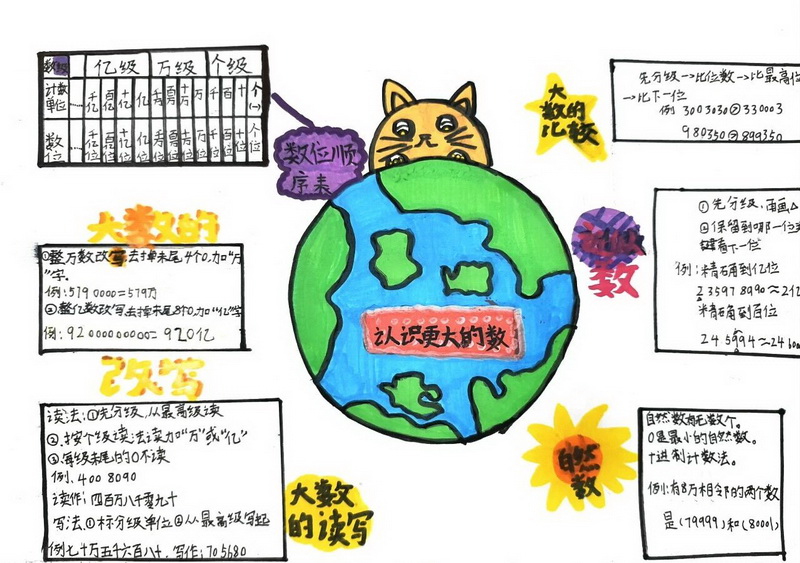 数级 亿级 万级 个级
计数单位 …… 千亿 百亿 十亿 亿 千万 百万 十万 万 千 百 十 个(一)
数位 …… 千亿位 百亿位 十亿位 亿位 千万位 百万位 十万位 万位 千位 百位 十位 个位
数位顺
序表
大数的
改写
①整万数改写去掉末尾4个0,加“万”
字.
例:5790000=579万
②整亿数改写去掉末尾8个0,加“亿”字
例:92000000000=920亿
读法:①先分级,从最高级读
②按个级读法读,加“万”或“亿”
③每级末尾的0不读
例.4008090
读作:四百万八千零九十
写法:①标分级单位②从最高级写起
例七十万五千六百八十.写作:705680
大数
的读写
认识更大的数
大
数的
比较
先分级→比位数→比最高位
→比下一位
例 3003030>330003
980350>899350
数
①先分级,画△
②保留到哪一位
看下一位
例:精确到亿位
235978990≈2亿
精确到百位
自然
数
自然数有无数个。
0是最小的自然数。
十进制计数法。
例:有8万相邻的两个数
是(79999)和(80001)